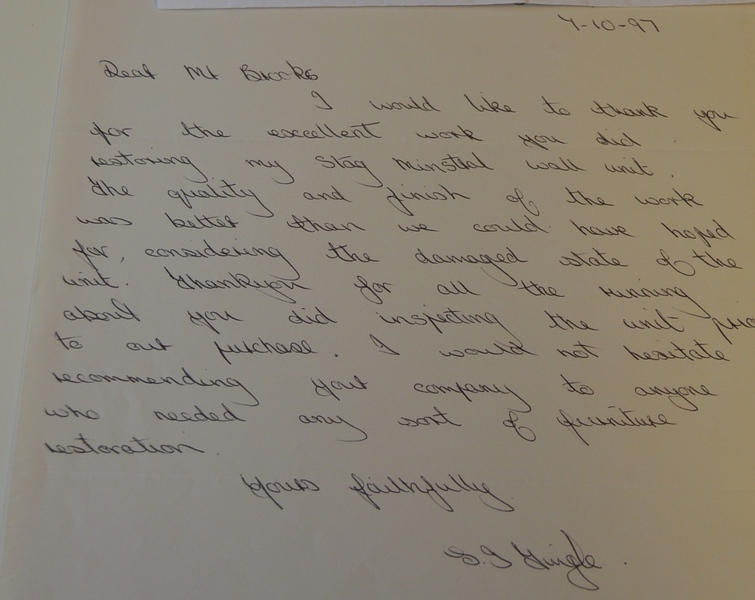 7-10-97
Dear Mr Brooks
I would like to thank you
for the excellent work you did
restoring my Stag Minstral wall unit.
The quality and finish of the work
was better than we could have hoped
for, considering the damaged state of the
unit. Thankyou for all the running
about you did inspecting the unit prio
to our purchase. I would not hesitate
recommending your company to anyone
who needed any sort of furniture
restoration.
Yours faithfully